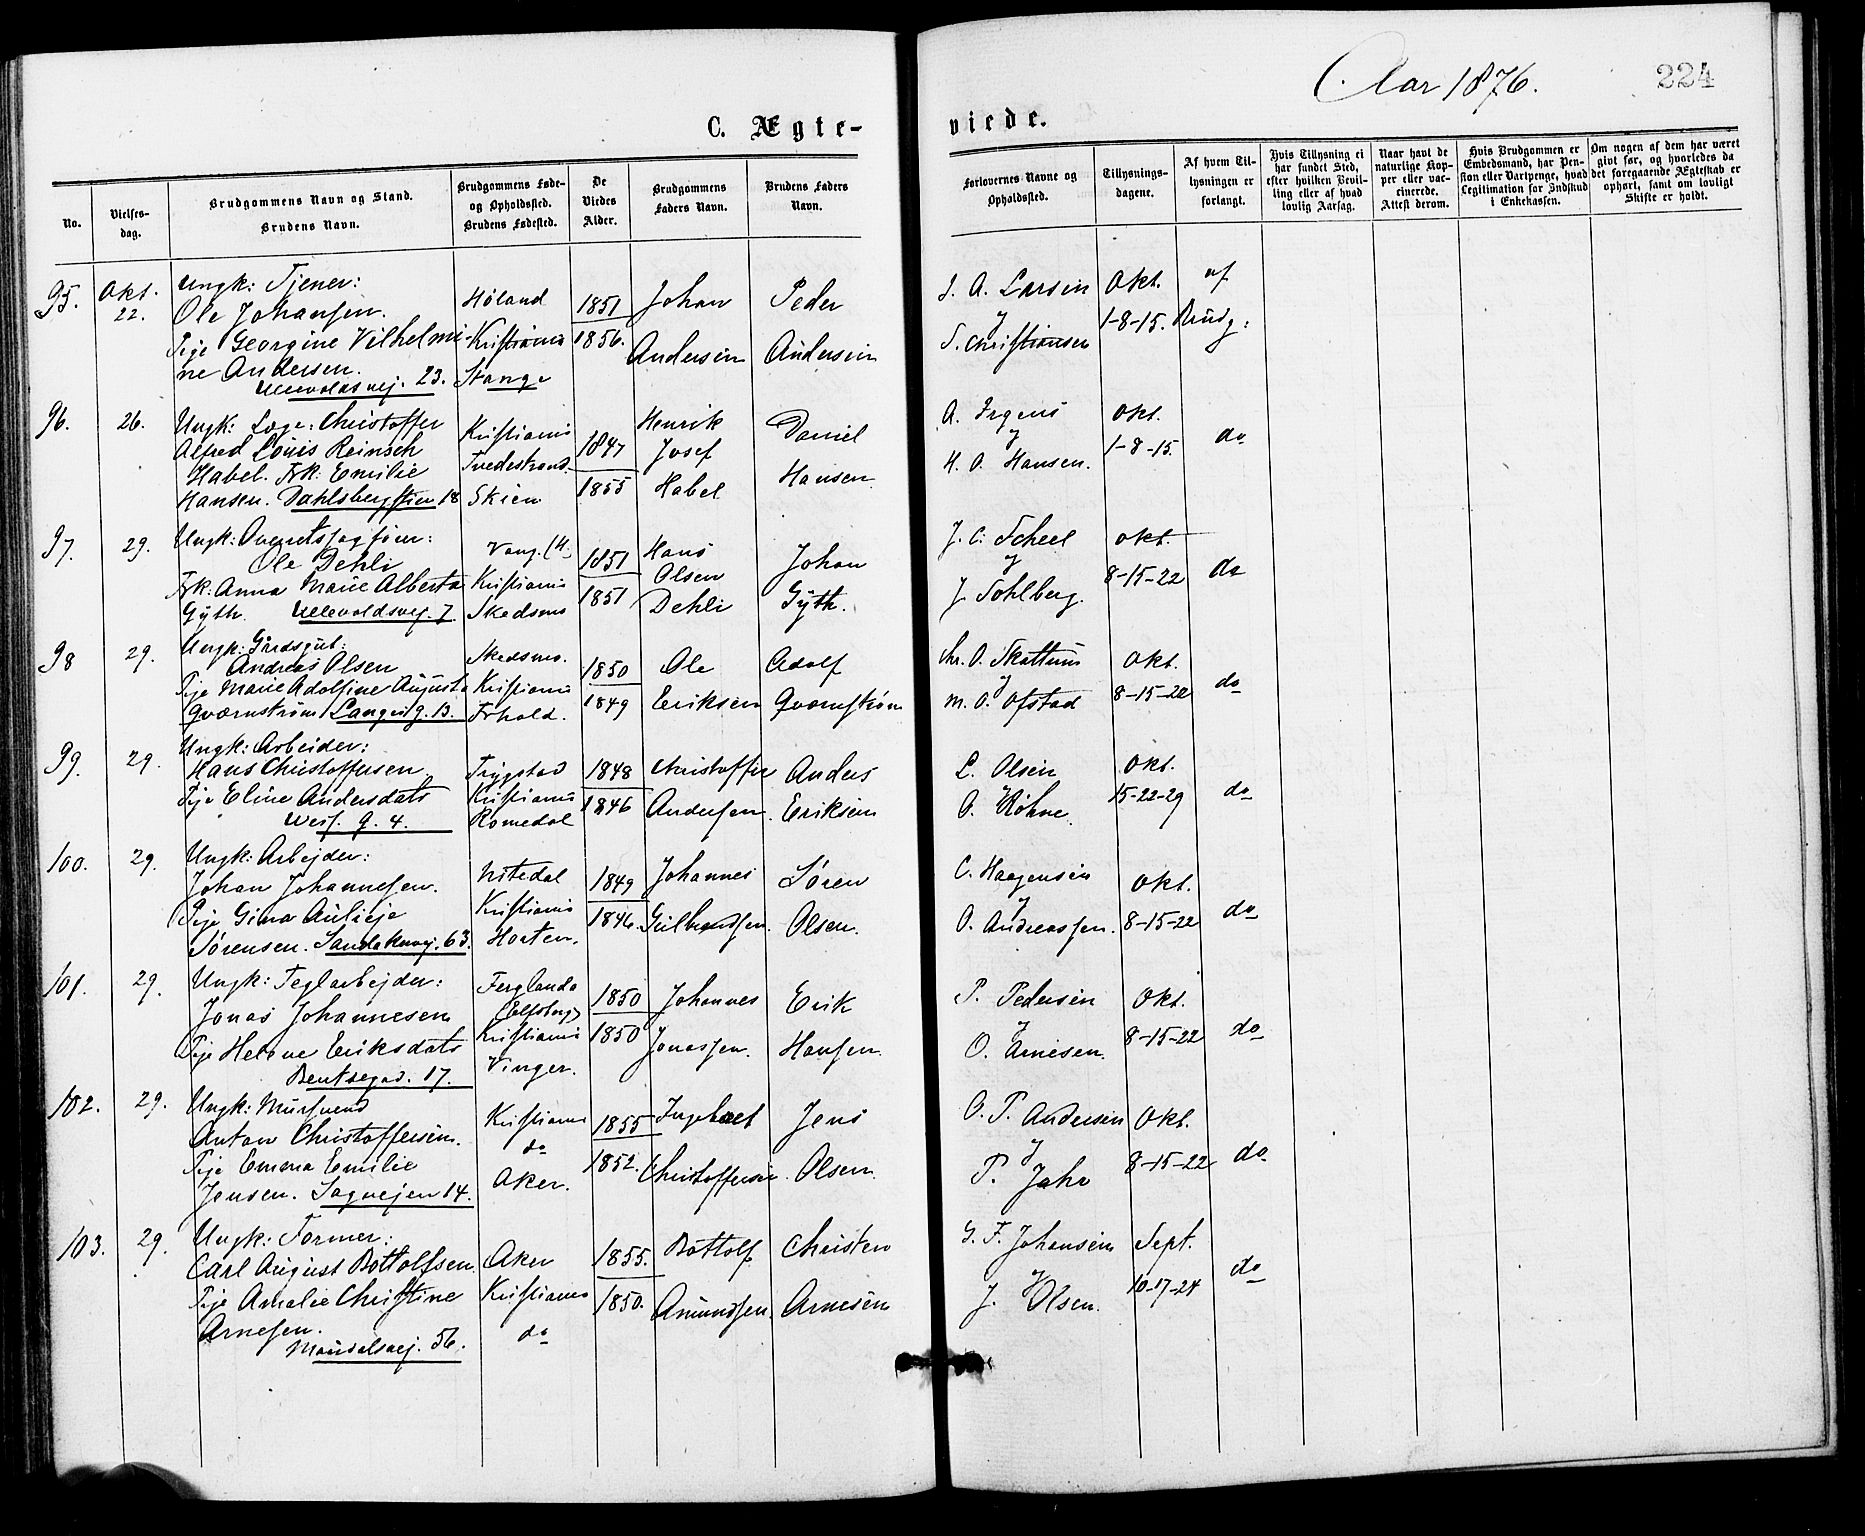 Aar 1876.
224
C. Ægte-
viede.
No.
Vielses-
dag.
Brudgommens Navn og Stand.
Brudens Navn.
Brudgommens Føde-
og Opholdssted.
Brudens Fødested.
De
Viedes
Alder.
Brudgommens
Faders Navn.
Brudens Faders
Navn.
Forlovernes Navne og
Opholdssted.
Tillysnings-
dagene.
Af hvem Til-
lysningen er
forlangt.
Hvis Tillysning ei
har fundet Sted,
efter hvilken Bevil-
ling eller af hvad
lovlig Aarsag.
Naar havt de
naturlige Kop-
per eller vac-
cinerede.
Attest derom.
Hvis Brudgommen er
Embedsmand, har Pen-
sion eller Vartpenge, hvad
Legitimation for Indskud
i Enkekassen.
Om nogen af dem har været
givt før, og hvorledes da
det foregaaende Ægteskab er
ophørt, samt om lovligt
Skifte er holdt.
95.
Okt.
22.
Ungk: Tjener:
Ole Johansen.
Pige Georgine Vilhelmi-
ne Andersen.
Ullevoldsvej. 23.
Høland
Kristiania
Stange
1851
1856.
Johan
Andersen
Peder
Andersen
J. A. Larsen
J
S. Christiansen
Okt.
1-8-15.
af
Brudg:
96.
26.
Ungk: Læge: Christoffer
Alfred Louis Reinsch
Habel. Frk: Emilie
Hansen. Dahlsbergstien 18
Kristiania
Tvedestrand.
Skien
1847
1855
Henrik
Josef
Habel
Daniel
Hansen
A. Irgens
J
H. O. Hansen.
Okt.
1-8-15.
do
97.
29.
Ungk: Overretssagfører:
Ole Dehli
Frk: Anna Marie Alberta
Gÿth. Ullevoldsvej. 7.
Vang. (H.
Kristiania
Skedsmo
1851
1851
Hans
Olsen
Dehli
Johan
Gÿth.
J. C. Scheel
J
J. Sohlberg.
Okt.
8-15-22
do
98
29.
Ungk: Gårdsgut:
Andreas Olsen
Pige Marie Adolfine Augusta
Qværnstrøm Langes g. 13.
Skedsmo.
Kristiania
Frhald.
1850
1849
Ole
Eriksen
Adolf
Qværnstrøm
Chr. O. Skattum
J
M. O. Ofstad
Okt.
8-15-22
do
99.
29.
Ungk: Arbeider:
Hans Christoffersen
Pige Eline Andersdatr
Wesf. g. 4.
Trygstad
Kristiania
Romedal
1848
1846
Christoffer
Andersen.
Anders
Eriksen
L. Olsen
O. Røhne.
Okt.
15-22-29
do
100.
29.
Ungk: Arbejder:
Johan Johannesen.
Pige Gina Aulieje
Sørensen. Sandakervej. 63.
Nitedal
Kristiania
Horten.
1849
1846.
Johannes
Gulbrandsen.
Søren
Olsen.
C. Haagensen
J
O. Andreassen.
Okt.
8-15-22
do
101.
29.
Ungk: Teglarbejder:
Jonas Johannesen
Pige Helene Eriksdatr
Bentsegad. 17.
Ferglanda
(Elfsborg)
Kristiania
Vinger.
1850
1850
Johannes
Jonassen.
Erik
Hansen.
P. Pedersen
J
O. Arnesen.
Okt.
8-15-22
do
102.
29.
Ungk: Mursvend
Anton Christoffersen.
Pige Emma Emilie
Jensen. Sagvejen 14.
Kristiania
do
Aker.
1855
1852.
Ingebret
Christoffersen.
Jens
Olsen.
O. P. Andersen
J
P. Jahr
Okt.
8-15-22
do
103.
29.
Ungk: Former:
Carl August Bottolfsen.
Pige Amalie Christine
Arnesen.
Maridalsvej. 56.
Aker
Kristiania
do
1855.
1850.
Bottolf
Amundsen.
Christen
Arnesen
G. F. Johansen
J
J. Olsen.
Sept.
10-17-24
do